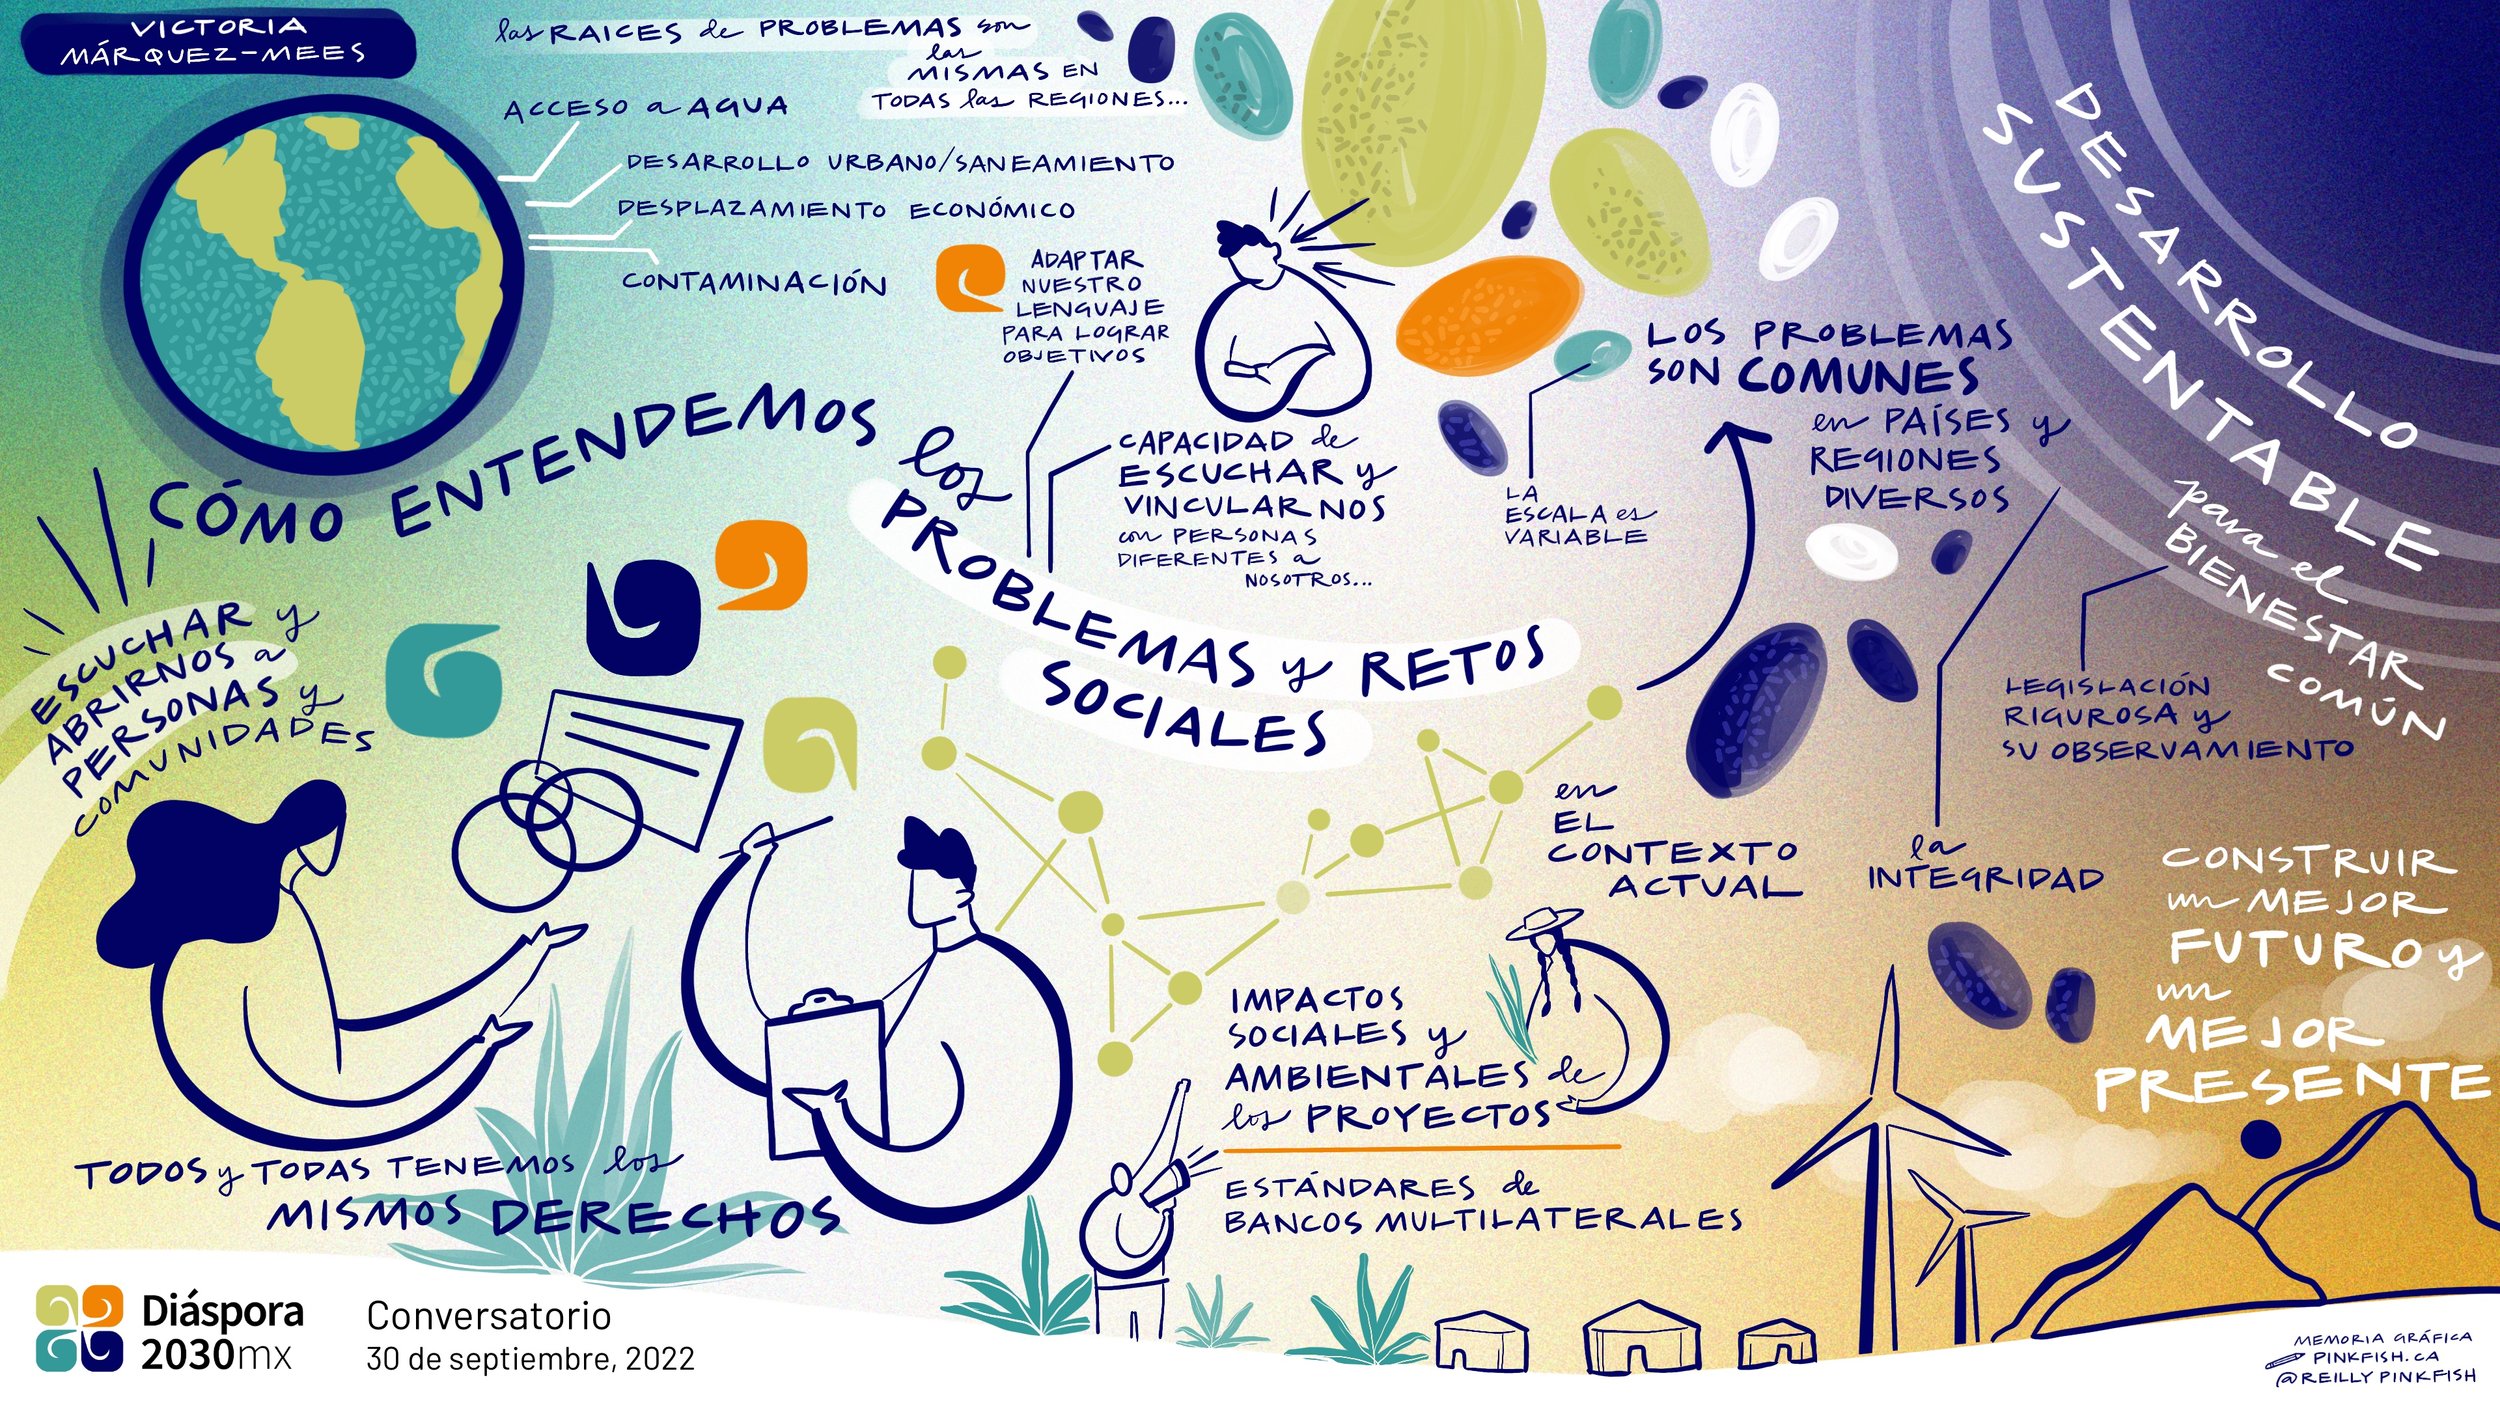 VICTORIA
MÁRQUEZ-MEES
las RAICES de PROBLEMAS son
las
MISMAS EN
TODAS las REGIONES...
ACCESO a AGUA
DESARROLLO URBANO/SANEAMIENTO
DESPLAZAMIENTO ECONÓMICO
CONTAMINACIÓN
ADAPTAR
NUESTRO
LENGUAJE
PARA LOGRAR
OBJETIVOS
CÓMO ENTENDEMOS los
PROBLEMAS y RETOS
SOCIALES
CAPACIDAD de
ESCUCHAR y
VINCULARNOS
con PERSONAS
DIFERENTES a
NOSOTROS...
LA
ESCALA es
VARIABLE
LOS PROBLEMAS
SON COMUNES
en PAÍSES y
REGIONES
DIVERSOS
DESARROLLO
SUSTENTABLE
para el
BIENESTAR
COMÚN
ESCUCHAR y
ABRIRNOS a
PERSONAS y
COMUNIDADES
LEGISLACIÓN
RIGUROSA y
SU OBSERVAMIENTO
en
EL
CONTEXTO
ACTUAL
la
INTEGRIDAD
CONSTRUIR
un MEJOR
FUTURO y
un
MEJOR
PRESENTE
IMPACTOS
SOCIALES y
AMBIENTALES de
los PROYECTOS
ESTÁNDARES de
BANCOS MULTILATERALES
TODOS y TODAS TENEMOS los
MISMOS DERECHOS
Diáspora
2030mx
Conversatorio
30 de septiembre, 2022
MEMORIA GRÁFICA
PINKFISH.CA
@REILLYPINKFISH